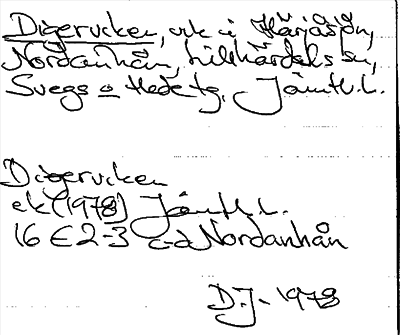 Digervicken, vik i Härjåsjön,
Nordanhån, Lillhärdals sn,
Svegs o Hede tg, Jämtl.l.
Digervicken
ek (1978) Jämtl.l.
16 E 2-3 c-d Nordanhån
D.J- 1978